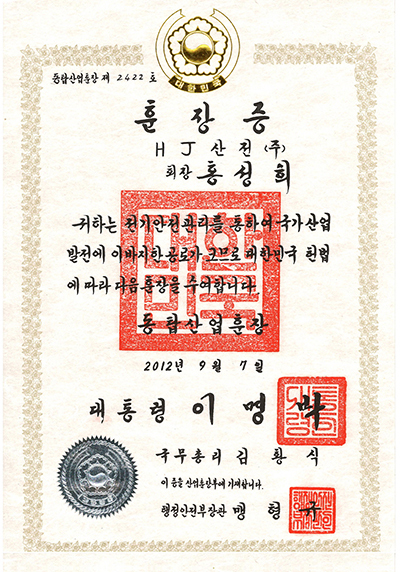 대한민국
동탑산업훈장 제 2422 호
훈장증
HJ산전(주)
회장 홍성희
귀하는 전기안전관리를 통하여 국가산업
발전에 이바지한 공로가 크므로 대한민국 헌법
에 따라 다음 훈장을 수여합니다.
동탑산업훈장
2012년 9월 7일
대통령 이명박
국무총리 김황식
이 증을 산업훈장부에 기재합니다.
행정안전부장관 맹형규